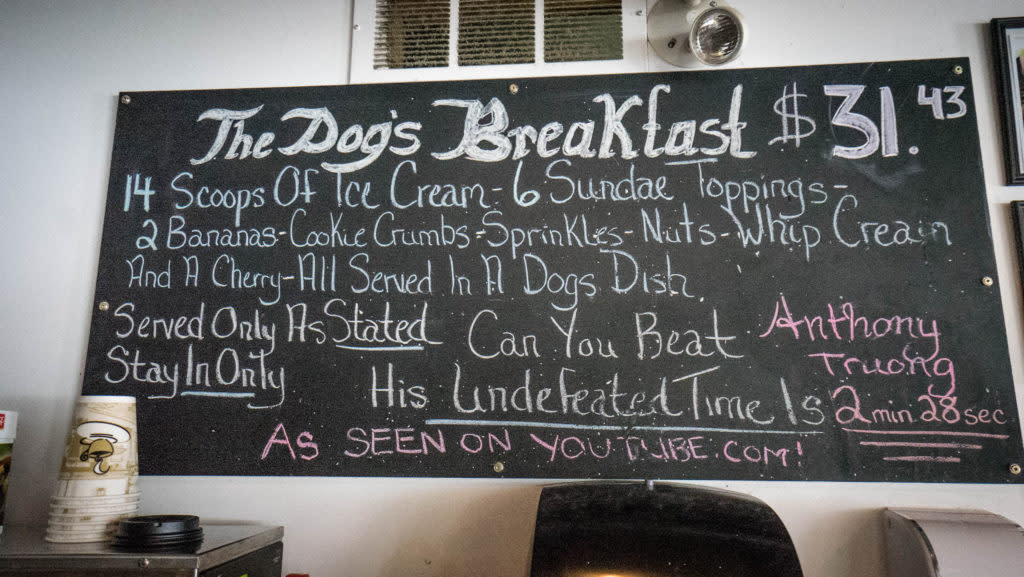 The Dog's Breakfast $31.43
14 Scoops Of Ice Cream - 6 Sundae Toppings -
2 Bananas - Cookie Crumbs - Sprinkles - Nuts - Whip Cream
And A Cherry - All Served In A Dogs Dish.
Served Only As Stated
Stay In Only
Can You Beat
His Undefeated Time Is
Anthony
Truong
2 min 28 sec
As SEEN ON YOUTUBE.COM!